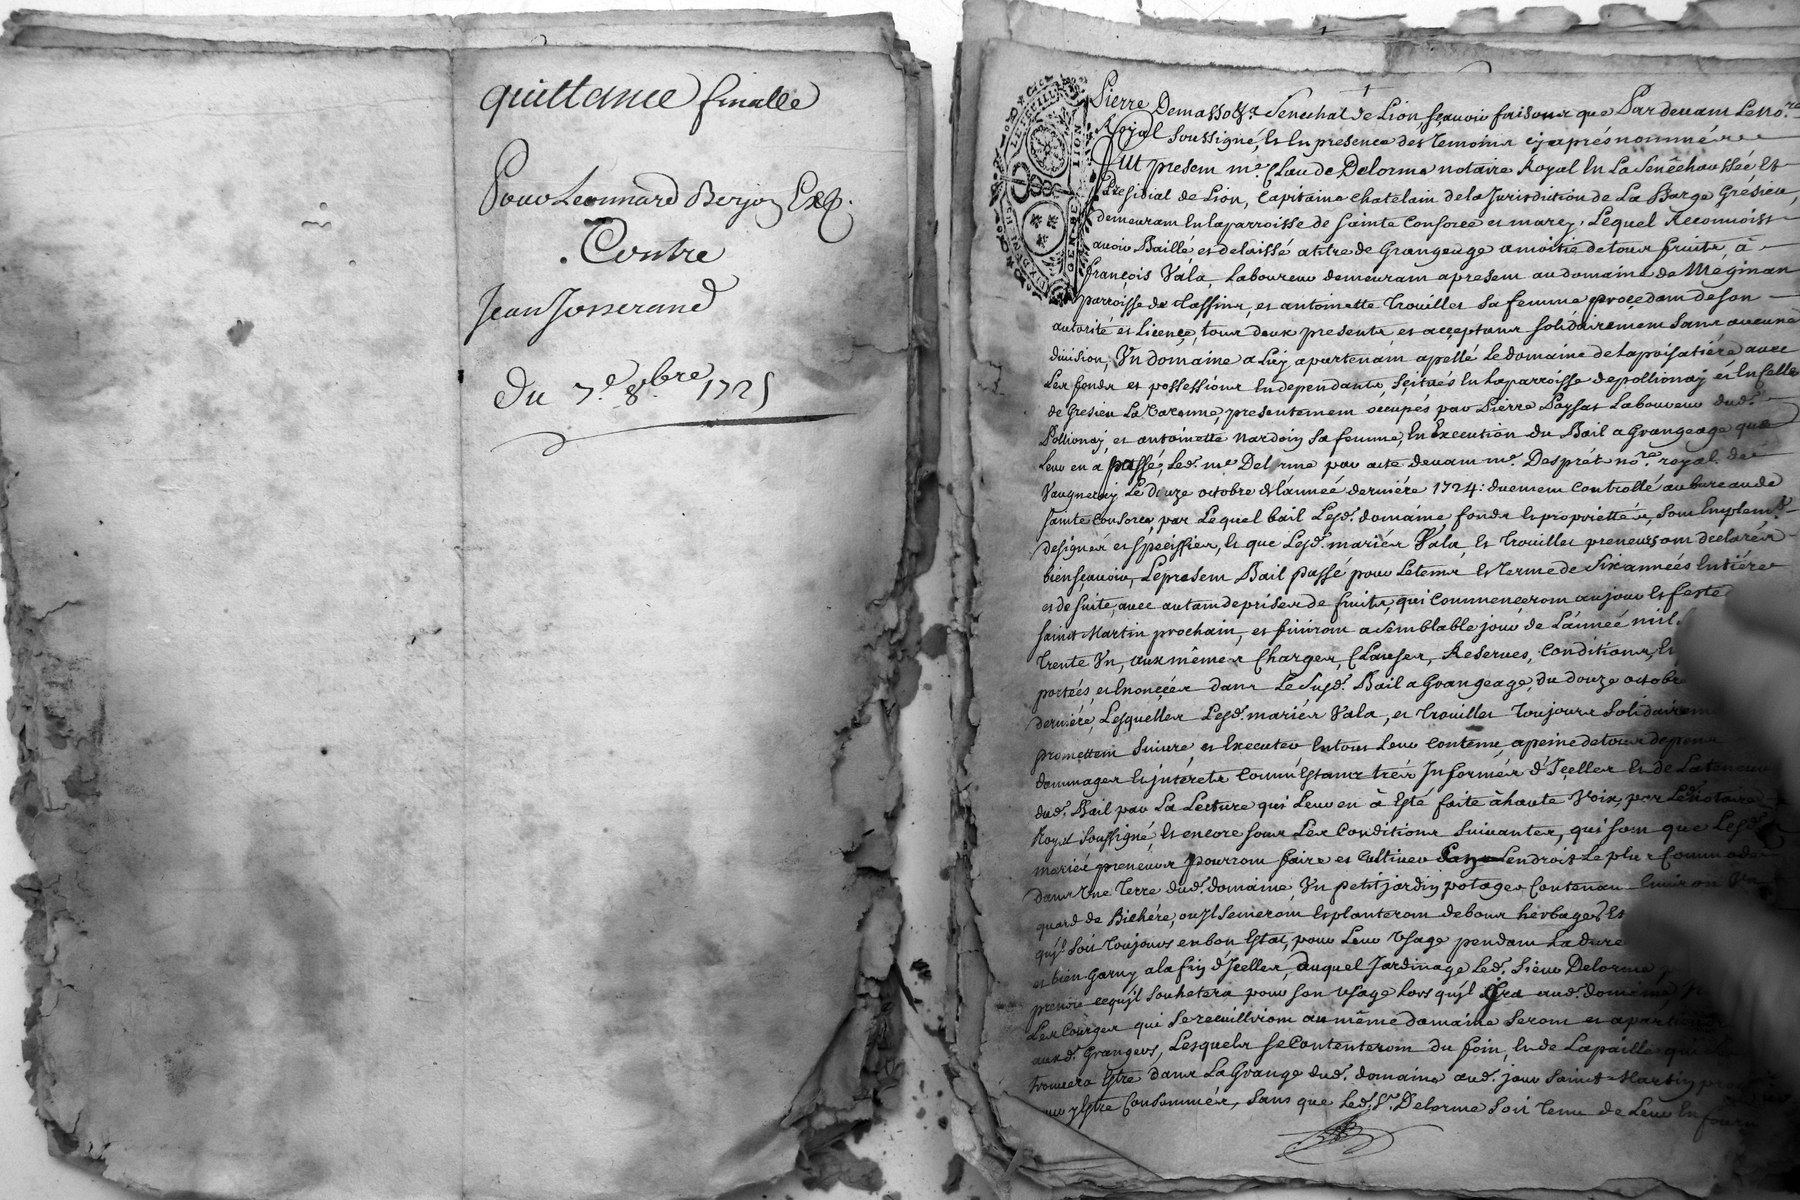 quittance finalle
Pour Leonnard Berjon
Contre
Jean Josserand
du 7.e 8.bre 1725
GENE DE LION
Pierre Demasso Senechal de Lion sçavoir faisons que Pardevant Le no.re
Royal soussigné, et en presence des temoins cy aprés nommés
Fut present m.e Claude Delorme notaire Royal en La Senéchaussée, et
Presidial de Lion, Capitaine chatelain de la Jurisdiction de La Barge Gresieu,
demeurant en la parroisse de sainte Consorce et marcy, Lequel Reconnoist
avoir Baillé et delaissé a titre de Grangeage a moitié de tous fruits, à
françois Vala, Laboureur demeurant a present au domaine de Méginan
parroisse de Tassins, et antoinette Trouillet sa femme procedant de son
autorité et Licence, tous deux presents et acceptans solidairement sans aucune
division, Un domaine a Luy apartenant apellé Le domaine de Lapoisatiére avec
Les fonds et possessions en dependants, scitués en La parroisse de pollionay et en celle
de Gresieu La Varenne, presentement occupés par Pierre Paysat Laboureur dud.t
Pollionay, et antoinette nardoin sa femme, En Execution du Bail a Grangeage que
Leur en a passé, Led. m.e Delorme par acte devant m.e Desprét no.re royal de
Vaugneray Le douze octobre de l'année derniére 1724: duement Controllé au bureau de
sainte Consorce, par Lequel bail Lesd. domaine, fonds et proprietés, sont
designés et speciffiés, et que Lesd. mariés Vala, et Trouillet preneurs ont declarés
bien sçavoir, Le present Bail passé pour Le tems et terme de Six années entiéres
et de suite, avec autant de prises de fruits, qui commenceront au jour et feste
saint Martin prochain, et finiront a semblable jour de L'année mil
trente Un, aux mêmes Charges, Clauses, Reserves, Conditions, et
portées et Enoncées dans Le susd. Bail a Grangeage, du douze octobre
derniére, Lesquelles Lesd. mariés Vala, et Trouillet toujours solidairem
promettent suivre, et Executer en tout Leur contenu, a peine de tous depens
dommages et intérets Comme Estant trés Informés d'Iceller et de La teneur
dud. Bail par La Lecture qui Leur en à Esté faite à haute Voix, par Led. notaire
Royal soussigné, et encore sous Les Conditions suivantes, qui sont que Lesd.
mariés preneurs pourront faire et Cultiver Lendroit Le plus Commode
dans Une Terre dud. domaine Un petit jardin potager Contenant Environ Un
quard de Bichére, ou Jl semeront et planteront de bons herbages, Et
qu'jl soit toujours en bon Estat, pour Leur Usage pendant La dure
et bien Garny a la fin d'Icelles, duquel Jardinage Led. Sieur Delorme
prenre ce qu'jl souhetera pour son usage Lors qu'jl sera aud. domaine
Les Courges qui se recuilliront au même domaine seront et apartiendr
auxd. Grangers, Lesquels se Contenteront du foin, et de La paille qui
trouvera Estre dans La Grange dud. domaine aud. jour saint Martin
pour y Estre Consommés, sans que Led. S.r Delorme soit tenu de Leur en fourn